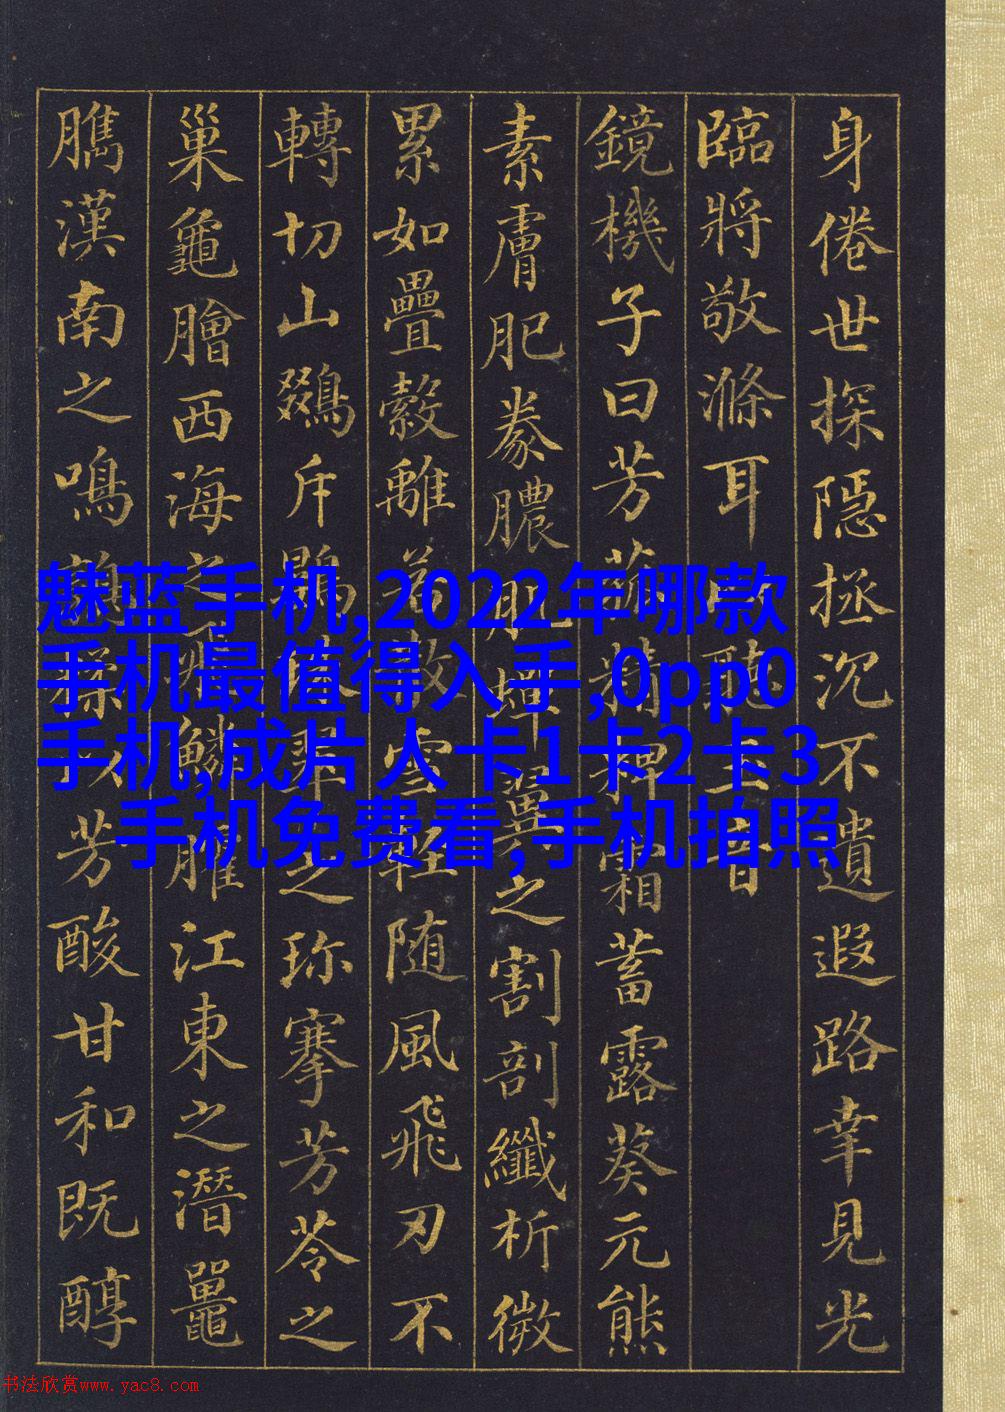 身倦世探隱拯沉不遺遐路幸見光
臨將敬滌耳聽玉音
鏡機子曰芳菰精粺霜蓄露葵元熊
素膚肥豢膿肌蟬翼之割剖纖析微
累如疊縠離若散雪輕随風飛刃不
轉切山鵽斥鷃珠翠之珎搴芳苓之
巢龜膾西海之飛鱗臛江東之潛鼉
臇漢南之鳴鶉糅以芳酸甘和既醇
魅蓝手机,2022年哪款
手机最值得入手,0pp0
手机,成片人卡1卡2卡3
手机免费看,手机拍照
书法欣赏www.yac8.com